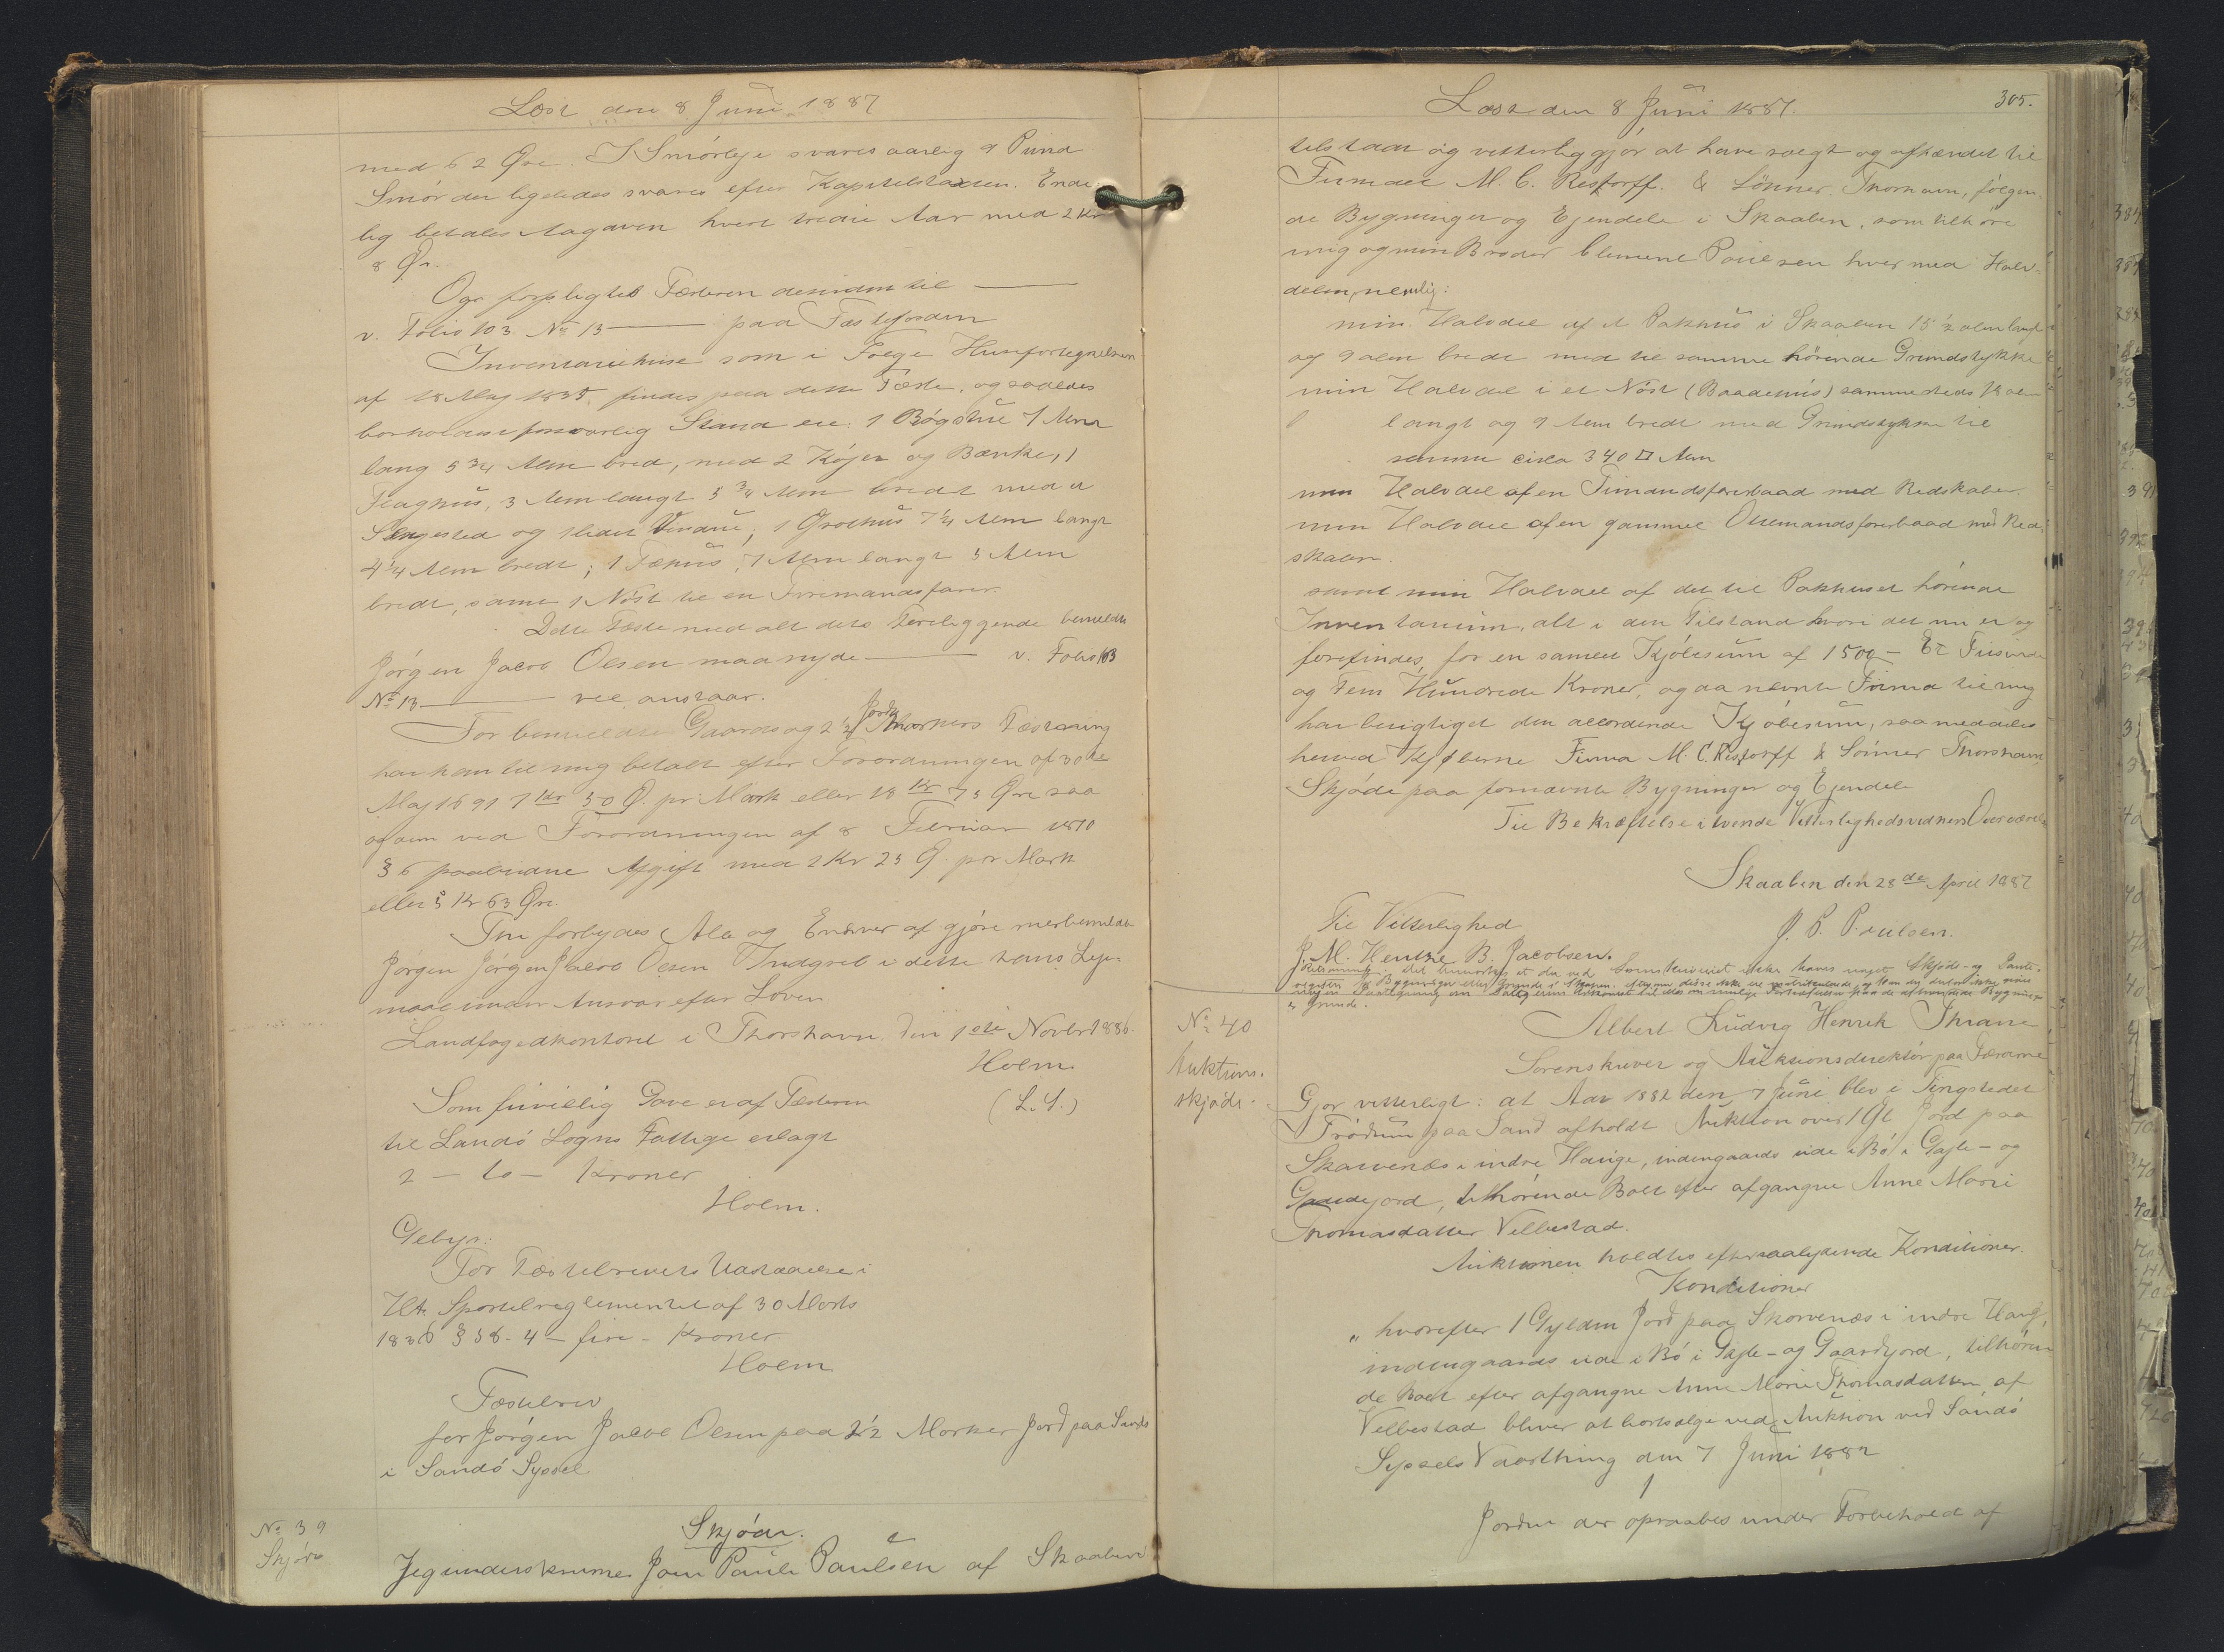 Læst den 8 Juni 1887
med 62 Øre. I Smørleje svares aarlig 9 Pund
Smør der ligeledes svares efter Kapitelstaxten. Ende
lig betales Aagaven hvert tredie Aar med 2 Kr
8 Ør.
Ogs forpligtes Fæsteren desuden til ―
v. Folio 103 No 13 ― paa Fæstejorden
Inventariehuse som i Følge Husfortegnelsen
af 18 Maj 1835, findes paa dette Fæste, og saaledes
forsvarlig Stand ere: 1 Røgstue 7 Alen
lang 5 3/4 Alen bred, med 2 Køjer og Bænke, 1
3 Alen langt 5 3/4 Alen bredt med et
Sengested og slidet Vindue, 1 7 1/4 Alen langt
4 1/4 Alen bredt; 1 Fæhus, 7 Alen langt 5 Alen
bredt, samt 1 Nøst til en Firemandsfarer.
Dette Fæste med alt dets Tilliggende bemeldte
Jørgen Jacob Olsen maa nyde ― v. Folio 103
No 13 ― vel anstaar.
For bemeldte Gaards og 2 1/2 Jords Markers Fæstning
har han til mig betalt efter Forordningen af 30te
Maj 1691 7 Kr 50 Ø. pr Mark eller 18 Kr 75 Øre saa
og den ved Forordningen af 8 Februar 1810
§ 6 paabudne Afgift med 2 Kr 25 Ø. pr Mark
eller 5 Kr 63 Øre.
Thi forbydes Alle og Enhver at gjøre merbemeldte
Jørgen Jørgen Jacob Olsen Indgreb i dette hans Leje-
maal under Ansvar efter Loven
Landfogedkontoret i Thorshavn den 1ste Novbr 1886.
Holm.
Som frivillig Gave er af Fæsteren (L.S.)
til Sandø Sogns Fattige erlagt
2 - to - Kroner
Holm.
Gebyr:
For Fæstebrevets Udstædelse i
Hht. Sportelreglementet af 30 Marts
1836 § 58 - 4 - fire - Kroner
Holm
Fæstebrev
for Jørgen Jacob Olsen paa 2 1/2 Marker Jord paa Sands
i Sandø Syssel
No 39
Skjøde
Skjøde.
Jeg underskrevne Joen Paule Paulsen af Skaalen
Læst den 8 Juni 1887.
305.
tilstaar og vitterliggjør at have solgt og afhændet til
Firmaet M. C. Restorff & Sønner, Thorshavn, følgen-
de Bygninger og Ejendele i Skaalen, som tilhøre
mig og min Broder Clement Poulsen hver med Halv-
delen, nemlig:
min Halvdel af et Pakhus i Skaalen 15 1/2 alen langt
og 9 alen bredt med til samme hørende Grundstykke
min Halvdel i et Nøst (Baadehus) sammesteds 18 alen
langt og 9 Alen bredt med Grundstykke til
samme cirka 340 □ Alen
min Halvdel af en Timandsfarerbaad med Redskaber.
min Halvdel af en gammel Ottemandsfarerbaad med Red-
skaber.
samt min Halvdel af det til Pakhuset hørende
Inventarium, alt i den Tilstand hvori det nu er og
forefindes, for en samlet Kjøbesum af 1500 - Et Tusinde
og Fem Hundrede Kroner, og da nævnte Firma til mig
har berigtiget den accorderede Kjøbesum, saa meddeles
herved Kjøberne Firma M. C. Restorff & Sønner Thorshavn
Skjøde paa fornævnte Bygninger og Ejendele
Til Bekræftelse i tvende Vitterlighedsvidners Overværelse
Skaalen den 28de April 1887
Til Vitterlighed
J. P. Poulsen.
J. M. Hentze B. Jacobsen.
Retsanmk: det bemærkes at der ved Sorenskriveriet ikke haves noget Skjøde- og Pante-
register for Bygninger eller Grunde i Skaalen, eftersom disse ikke ere matrikulerede, og kan der derfor ikke gives
nogen Paategning om Sælgerens Adkomst til eller om mulige Forhæftelser paa de afhændede Bygninger
& Grunde.
No 40
Auktions-
skjøde.
Albert Ludvig Henrik Thrane
Sorenskriver og Auktionsdirektør paa Færøerne
Gjør vitterligt: at Aar 1882 den 7 Juni blev i Tingstedet
Trødum paa Sand afholdt Auktion over 1 Gl. Jord paa
Skarvenæs i indre Hauge, indengaards ude i Bø i Gajle- og
Gaardejord, tilhørende Boet efter afgangne Anne Marie
Thomasdatter Velbestad.
Auktionen holdtes efter saalydende Konditioner.
Konditioner
"hvorefter 1 Gylden Jord paa Skarvenæs i indre Haug,
indengaards ude i Bø i Gajle- og Gaardjord, tilhøren
de Boet efter afgangne Anne Marie Thomasdatter af
Velbestad bliver at bortsælge ved Auktion ved Sandø
Syssels Vaarthing den 7 Juni 1882
1
Jorden der opraabes under Forbehold af